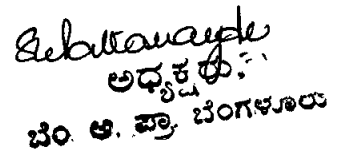 ಅಧ್ಯಕ್ಷರು.
ಬೆಂ. ಆ. ಪ್ರಾ. ಬೆಂಗಳೂರು